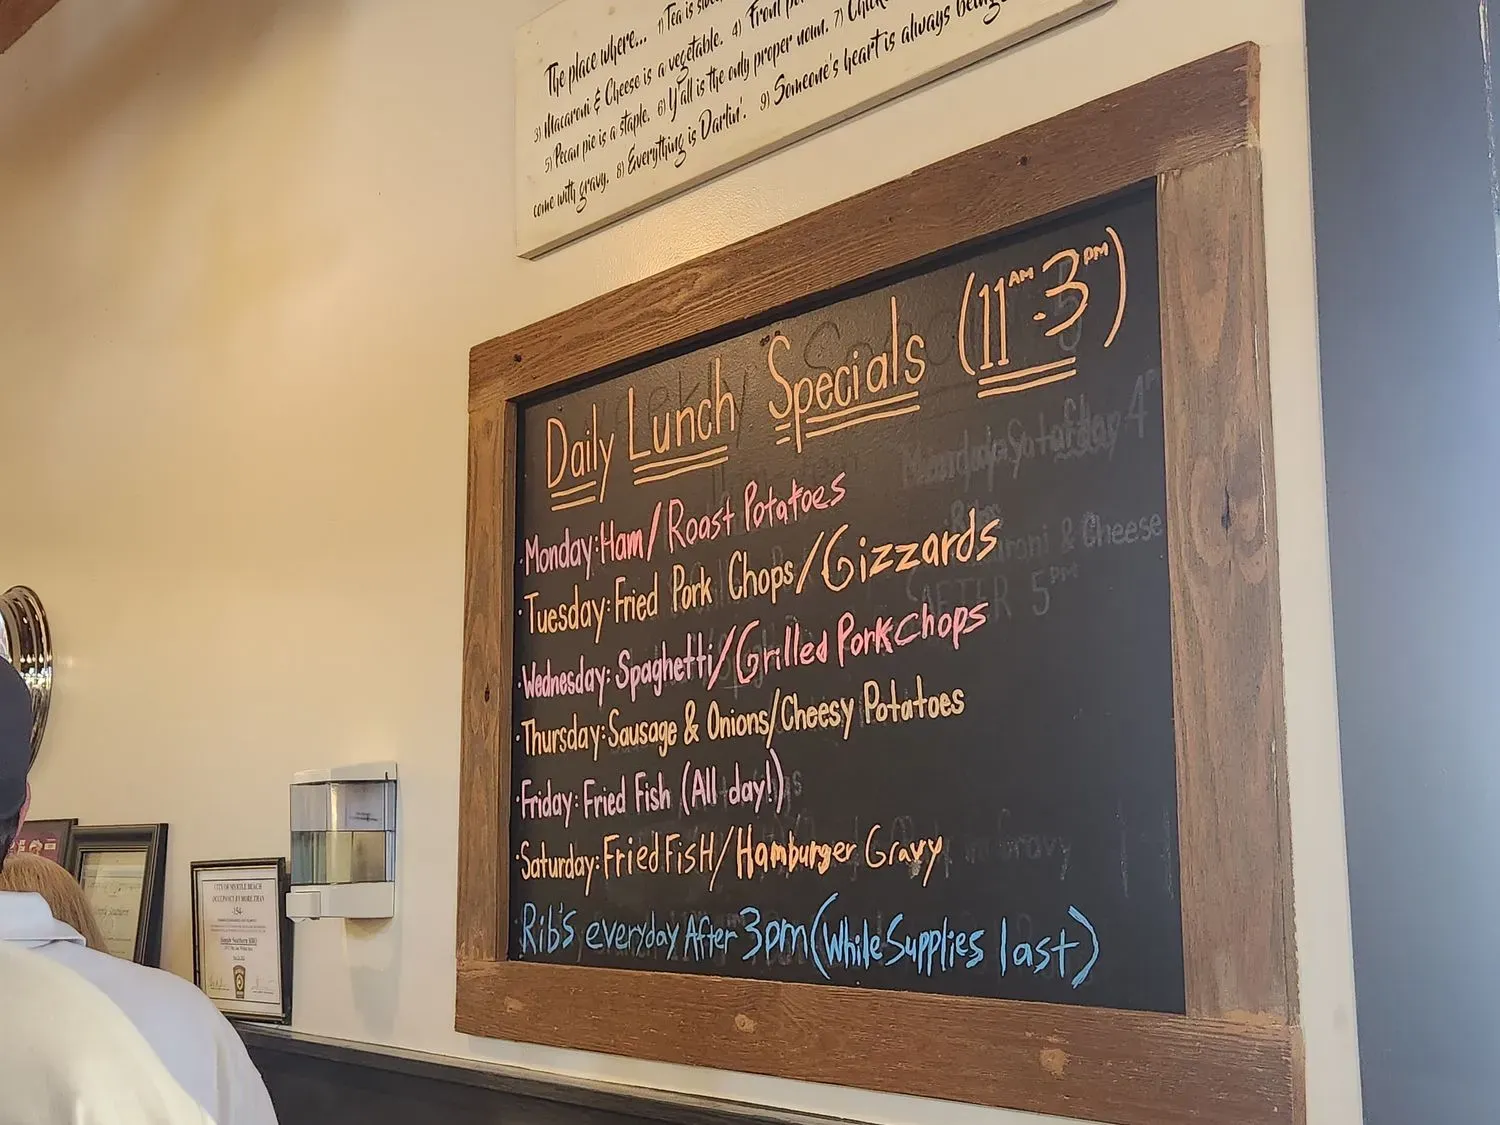 The place where... 1) Tea is
3) Macaroni & Cheese is a vegetable. 4) Front
5) Pecan pie is a staple. 6) Y'all is the only proper noun. 7)
come with gravy. 8) Everything is Darlin'. 9) Someone's heart is always being
Daily Lunch Specials (11AM-3PM)
·Monday: Ham/Roast Potatoes
·Tuesday: Fried Pork Chops/Gizzards
·Wednesday: Spaghetti/Grilled Pork Chops
·Thursday: Sausage & Onions/Cheesy Potatoes
·Friday: Fried Fish (All day!)
·Saturday: Fried FisH/Hamburger Gravy
·Rib's everyday After 3pm (While Supplies last)
& Cheese
AFTER 5PM
CITY OF MYRTLE BEACH
OCCUPANCY BY MORE THAN
-154-
Simply Southern BBQ